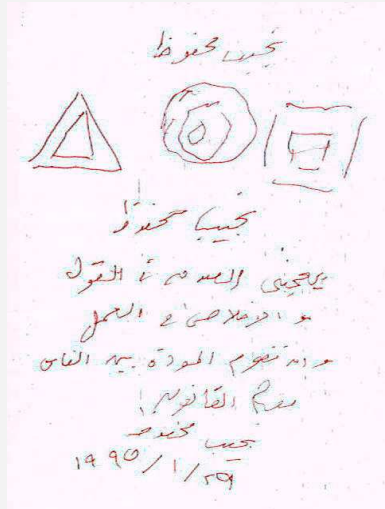 نجيب محفوظ
نجيب محفوظ
يعجبني الصدق في القول
والإخلاص في العمل
وان تقوم المودة بين الناس
مقام القانون
نجيب محفوظ
١٩٩٥/١/٢٩